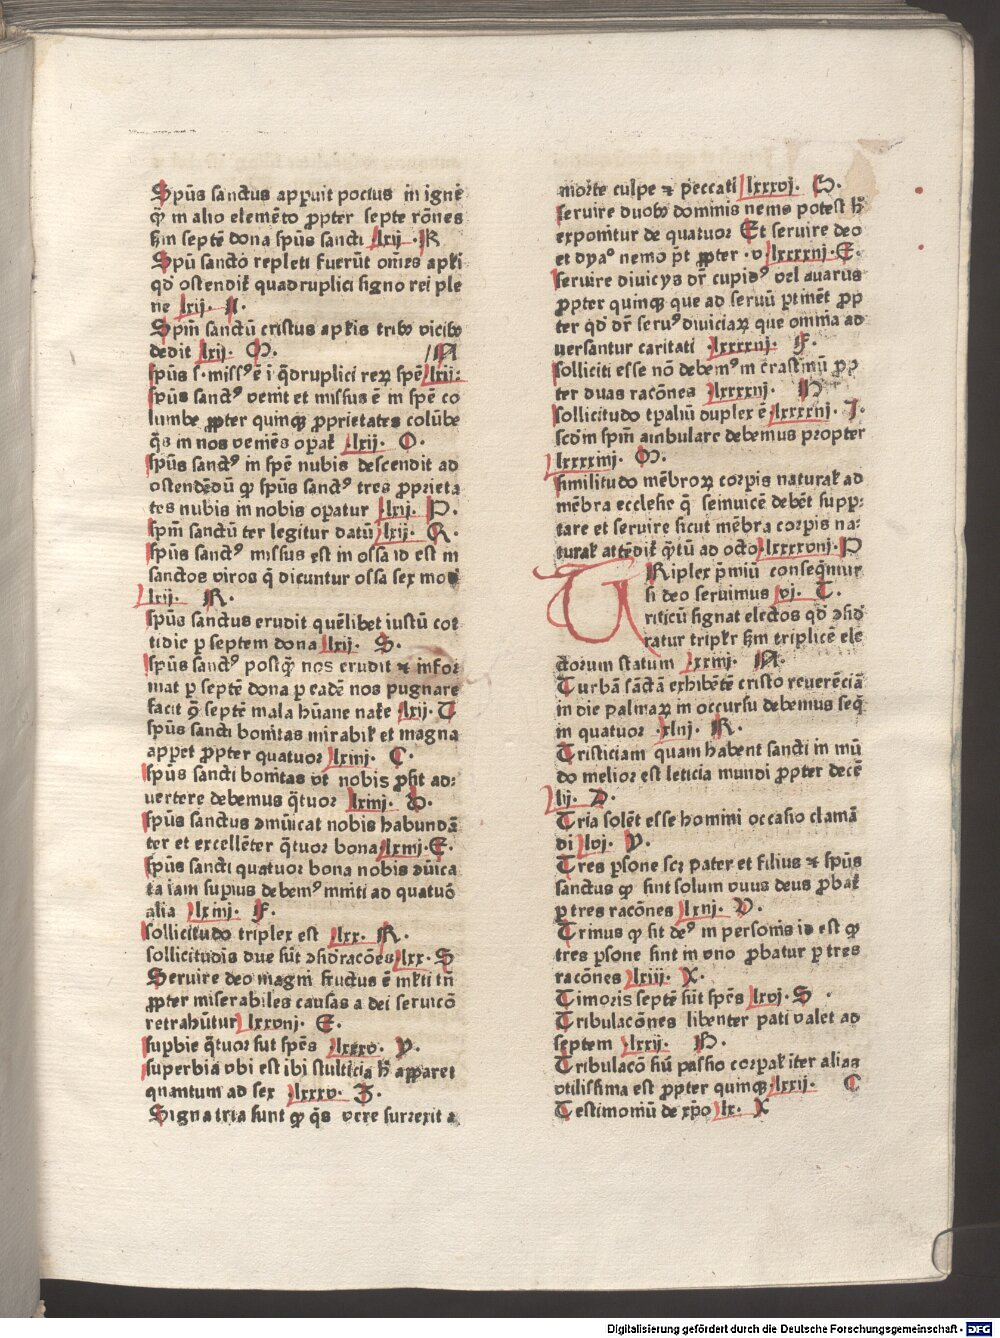 Spūs sanctus apꝑuit pocius in ignē
ꝙ̄ in alio elemēto ꝓpter septē rōnes
ẜm septē dona spūs sancti lxij · K
Spū sancto repleti fuerūt om̄es apl̄i
qd̛ ostendit̛ quadruplici signo rei ple
ne lxij · L ·
Spm̄ sanctū cristus apl̄is tribꝰ vicibꝰ
dedit lxij · M · /N
spūs s · missꝰ ē ī q̄druplici reꝝ spē lxij:
spūs sanctꝰ venit et missus ē in spē co
lumbe ꝓpter quinqꝫ ꝓprietates colūbe
q̄s in nos veniēs opat̛ lxij · O ·
spūs sanctꝰ in spē nubis descendit ad
ostendēdū ꝙ spūs sanctꝰ tres ꝓprieta
tes nubis in nobis opatur lxij · P ·
spm̄ sanctū ter legitur datū lxij · Q ·
spūs sanctꝰ missus est in ossa id est in
sanctos viros q̄ dicuntur ossa sex mo
lxij · R ·
spūs sanctus erudit quēlibet iustū cot
tidie ꝑ septem dona lxij · S ·
spūs sanctꝰ postꝙ̄ nos erudit ⁊ infor
mat ꝑ septē dona ꝑ eadē nos pugnare
facit ꝯ septē mala hūane nat̛e lxij · T
spūs sancti bonitas mirabil̛ et magna
appet ꝓpter quatuor lxiij · C ·
spūs sancti bonitas vt nobis ꝓsit ad-
uertere debemus q̄tuor lxiij · D ·
spūs sanctus ꝯmūicat nobis habundā
ter et excellēter q̄tuor bona lxiij · E ·
spūs sancti quatuor bona nobis ꝯūica
ta iam supius debemꝰ īniti ad quatuō
alia lxiij · F ·
sollicitudo triplex est lxx · R ·
sollicitudīs due sūt ꝯsid̛acōes lxx · S
Seruire deo magni fructus ē ml̛ti tn̄
ꝓpter miserabiles causas a dei seruicō
retrahūtur lxxviij · E ·
supbie q̄tuor sūt spēs lxxxv · Y ·
superbia vbi est ibi stulticia h̛ apparet
quantum ad sex lxxxv · Z ·
Signa tria sunt ꝙ q̄s vere surrexit a
morte culpe ⁊ peccati lxxxvj · H ·
seruire duobꝰ dominis nemo potest h̛
exponitur de quatuor Et seruire deo
et dyaᵒ nemo pt̄ ꝓpter · v lxxxxiij · E ·
seruire diuicijs dr̄ cupidꝰ vel auarus
ꝓpter quinqꝫ que ad seruū ꝑtinēt ꝓp
ter qd̛ dr̄ seruꝰ diuiciaꝝ que omnia ad
uersantur caritati lxxxxiij · F ·
solliciti esse nō debemꝰ in crastinū ꝓp
ter duas racōnes lxxxxiij · H
sollicitudo tꝑaliū duplex ē lxxxxiij · I ·
scd̄m spm̄ ambulare debemus propter
lxxxxiiij · M ·
similitudo mēbroꝝ corpis natural̛ ad
mēbra ecclesie q̄ seinuicē debēt supp-
tare et seruire sicut mēbra corpis na-
tural̛ attēdit̛ q̄tū ad octo lxxxxviij · P
TRiplex p̄miū conseq̄mur
si deo seruimus vj · T ·
triticū signat electos qd̛ ꝯsid̛
ratur triplr̛ ẜm triplicē ele
ctorum statum xxiij · N ·
Turbā sāctā exhibētē cristo reuerēciā
in die palmaꝝ in occursu debemus seq̄
in quatuor xliij · R ·
Tristiciam quam habent sancti in mū
do melior est leticia mundi ꝓpter decē
lij · D ·
Tria solēt esse homini occasio clamā
di lvj · V ·
Tres ꝑsone scꝫ pater et filius ⁊ spūs
sanctus ꝙ sint solum vnus deus ꝓbat̛
ꝑ tres racōnes lxiij · V ·
Trinus ꝙ sit deꝰ in personis id est ꝙ
tres ꝑsone sint in vno ꝓbatur ꝑ tres
racōnes lxiij · X ·
Timoris septē sūt spēs lxvj · S ·
Tribulacōnes libenter pati valet ad
septem lxxij · H ·
Tribulacō siư passio corꝑal̛ iter alias
vtilissima est ꝓpter quinqꝫ lxxij · C
Testimoniū de xp̄o lx · X
Digitalisierung gefördert durch die Deutsche Forschungsgemeinschaft - DFG